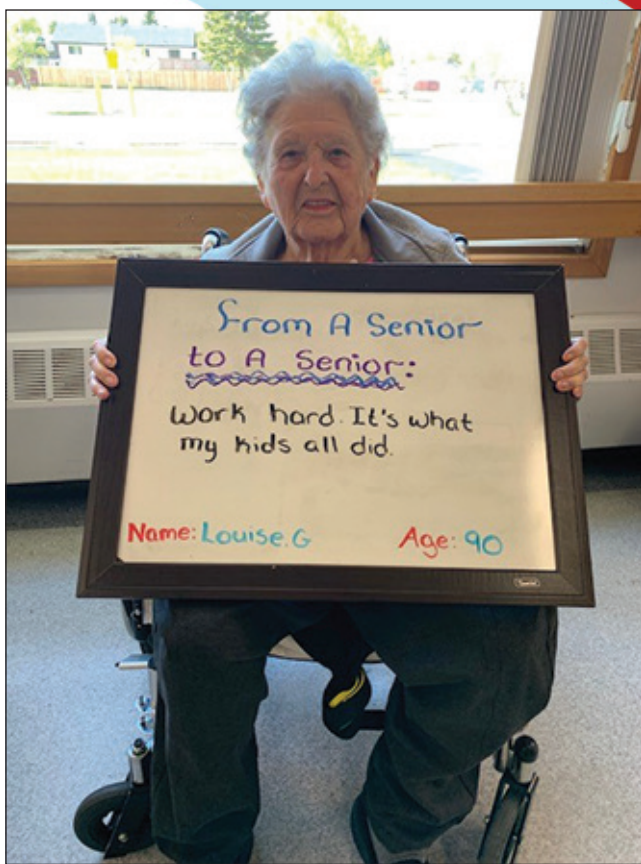 From A Senior
to A Senior:
Work hard. It's what
my kids all did.
Name: Louise.G
Age: 90